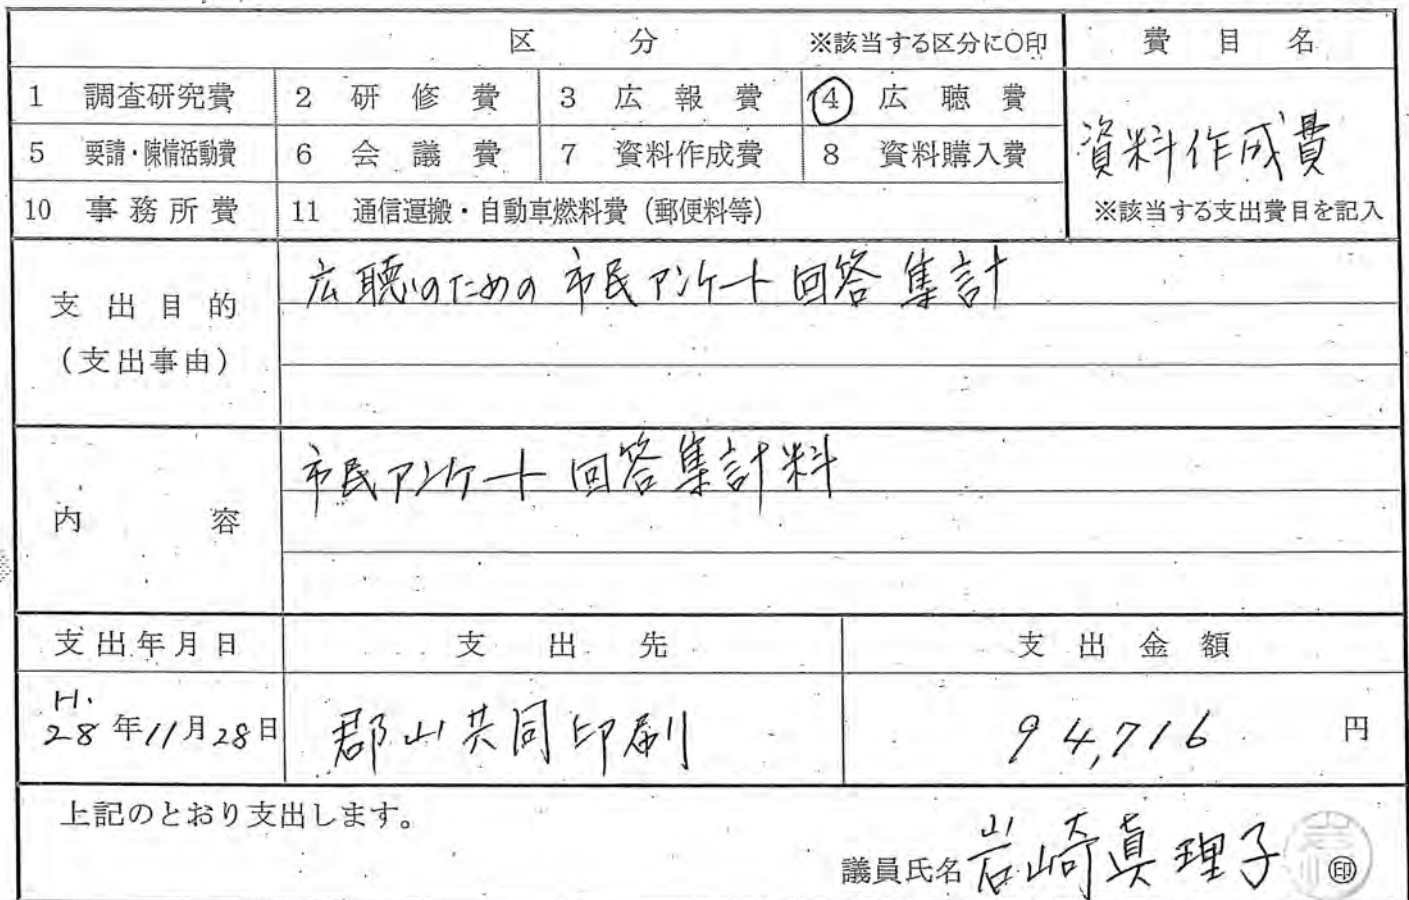 区 分 ※該当する区分に○印 費 目 名
1 調査研究費 2 研 修 費 3 広 報 費 ④ 広 聴 費
資料作成費
5 要請・陳情活動費 6 会 議 費 7 資料作成費 8 資料購入費
10 事務所費 11 通信運搬・自動車燃料費（郵便料等） ※該当する支出費目を記入
支出目的
（支出事由）
広聴のための市民アンケート回答集計
内 容
市民アンケート回答集計料
支出年月日 支 出 先 支 出 金 額
H.
28年11月28日 郡山共同印刷 94,716 円
上記のとおり支出します。
議員氏名 岩崎真理子 ㊞